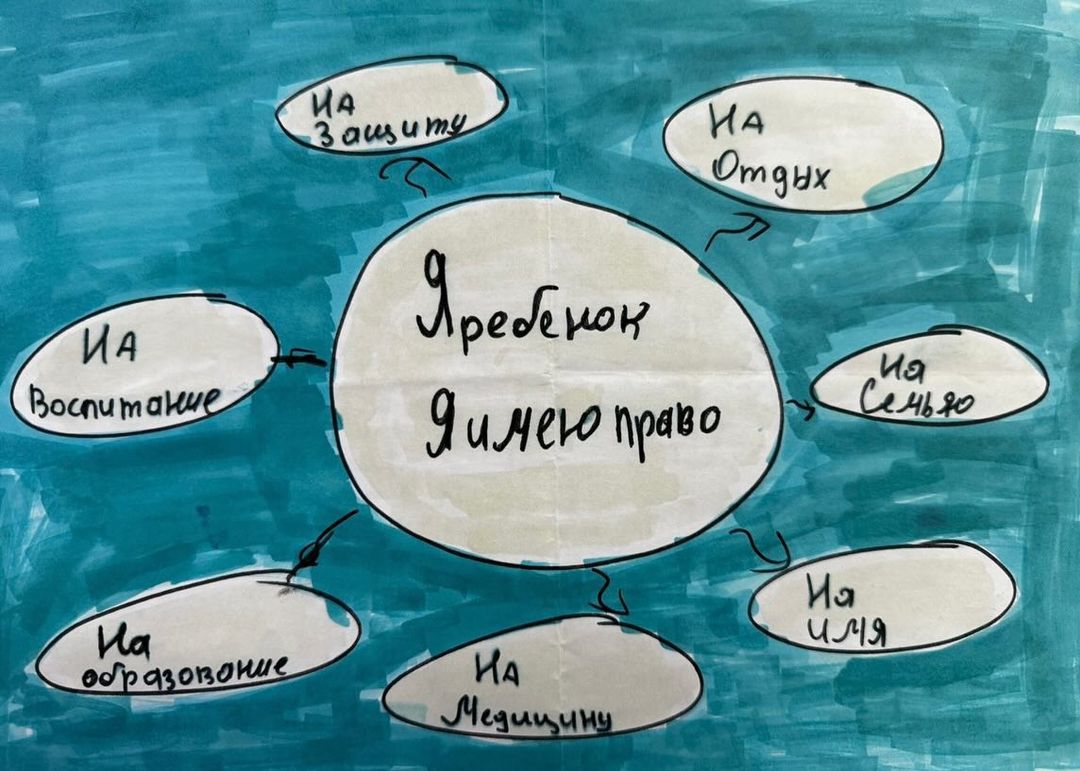 На
Защиту
На
Отдых
Я ребенок
Я имею право
На
Воспитание
На
Семью
На
образование
На
Медицину
На
имя